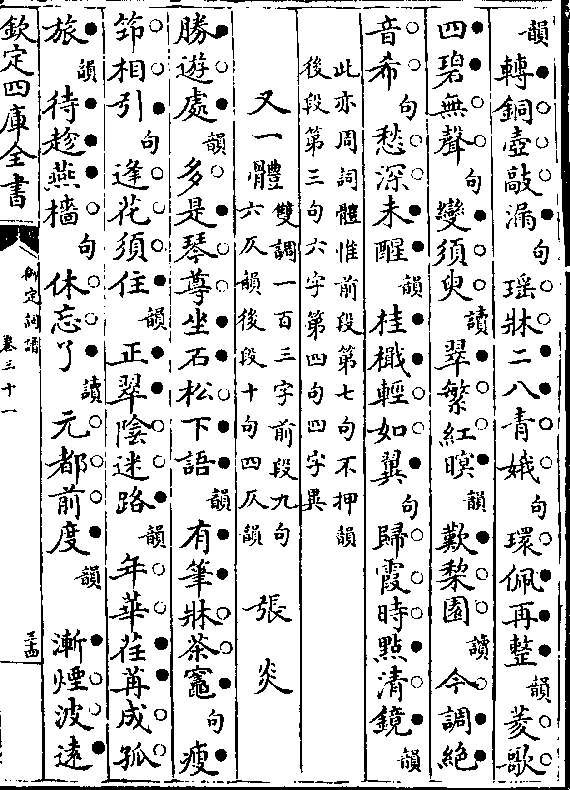 韻轉銅壺敲漏句瑶牀二八青娥句環佩再整韻菱歌
四碧無聲句變須臾讀翠繁紅暝韻歎棃園讀今調絶
音希句愁深未醒韻桂檝輕如翼句歸霞時點清鏡韻
此亦周詞體惟前段第七句不押韻
後段第三句六字第四句四字異
又一體雙調一百三字前段九句
六仄韻後段十句四仄韻張炎
勝遊處韻多是琴尊坐石松下語韻有筆牀茶竈句瘦
筇相引句逢花須住韻正翠陰迷路韻年華荏苒成孤
旅韻待趁燕檣句休忘了讀元都前度韻漸煙波遠
欽定四庫全書
御定詞譜
卷三十一